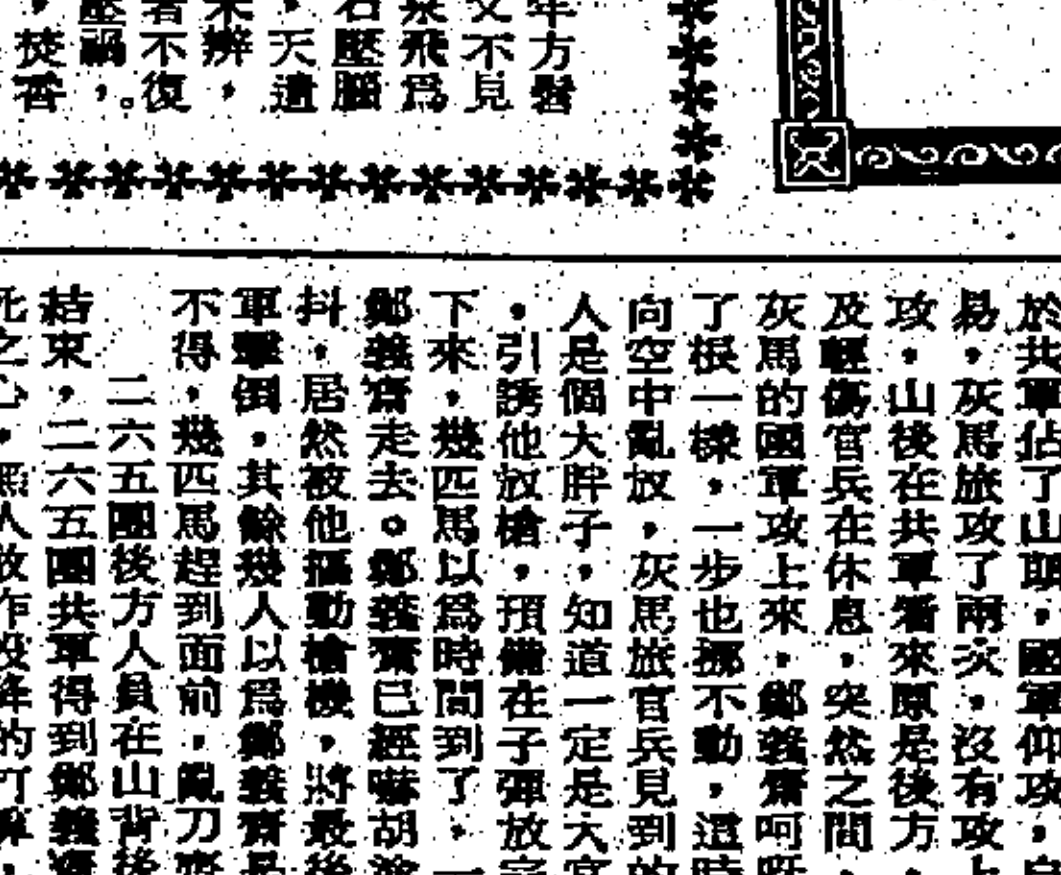 年方髫
文不見
飛飛爲
石壓腦
天遣
未辨，
者不復
壓禍，。
，焚香
於共軍佔了山頭，國軍仰攻，
易，灰馬旅攻了兩次，沒有攻上
攻，山後在共軍看來原是後方，
及輕傷官兵在休息，突然之間，
灰馬的國軍攻上來，鄭義齋呵
了根一樣，一步也挪不動，這時
向空中亂放，灰馬旅官兵見到的
人是個大胖子，知道一定是大官
，引誘他放槍，預備在子彈放完
下來，幾匹馬以爲時間到了，一
鄭義齋走去。鄭義齋已經嚇胡塗
抖，居然被他摳動槍機，將最後
軍擊倒，其餘幾人以爲鄭義齋是
不得，幾匹馬趕到面前，亂刀齊
二六五團後方人員在山背後
結束，二六五團共軍得到鄭義齋
死之心，無人敢作投降的打算，